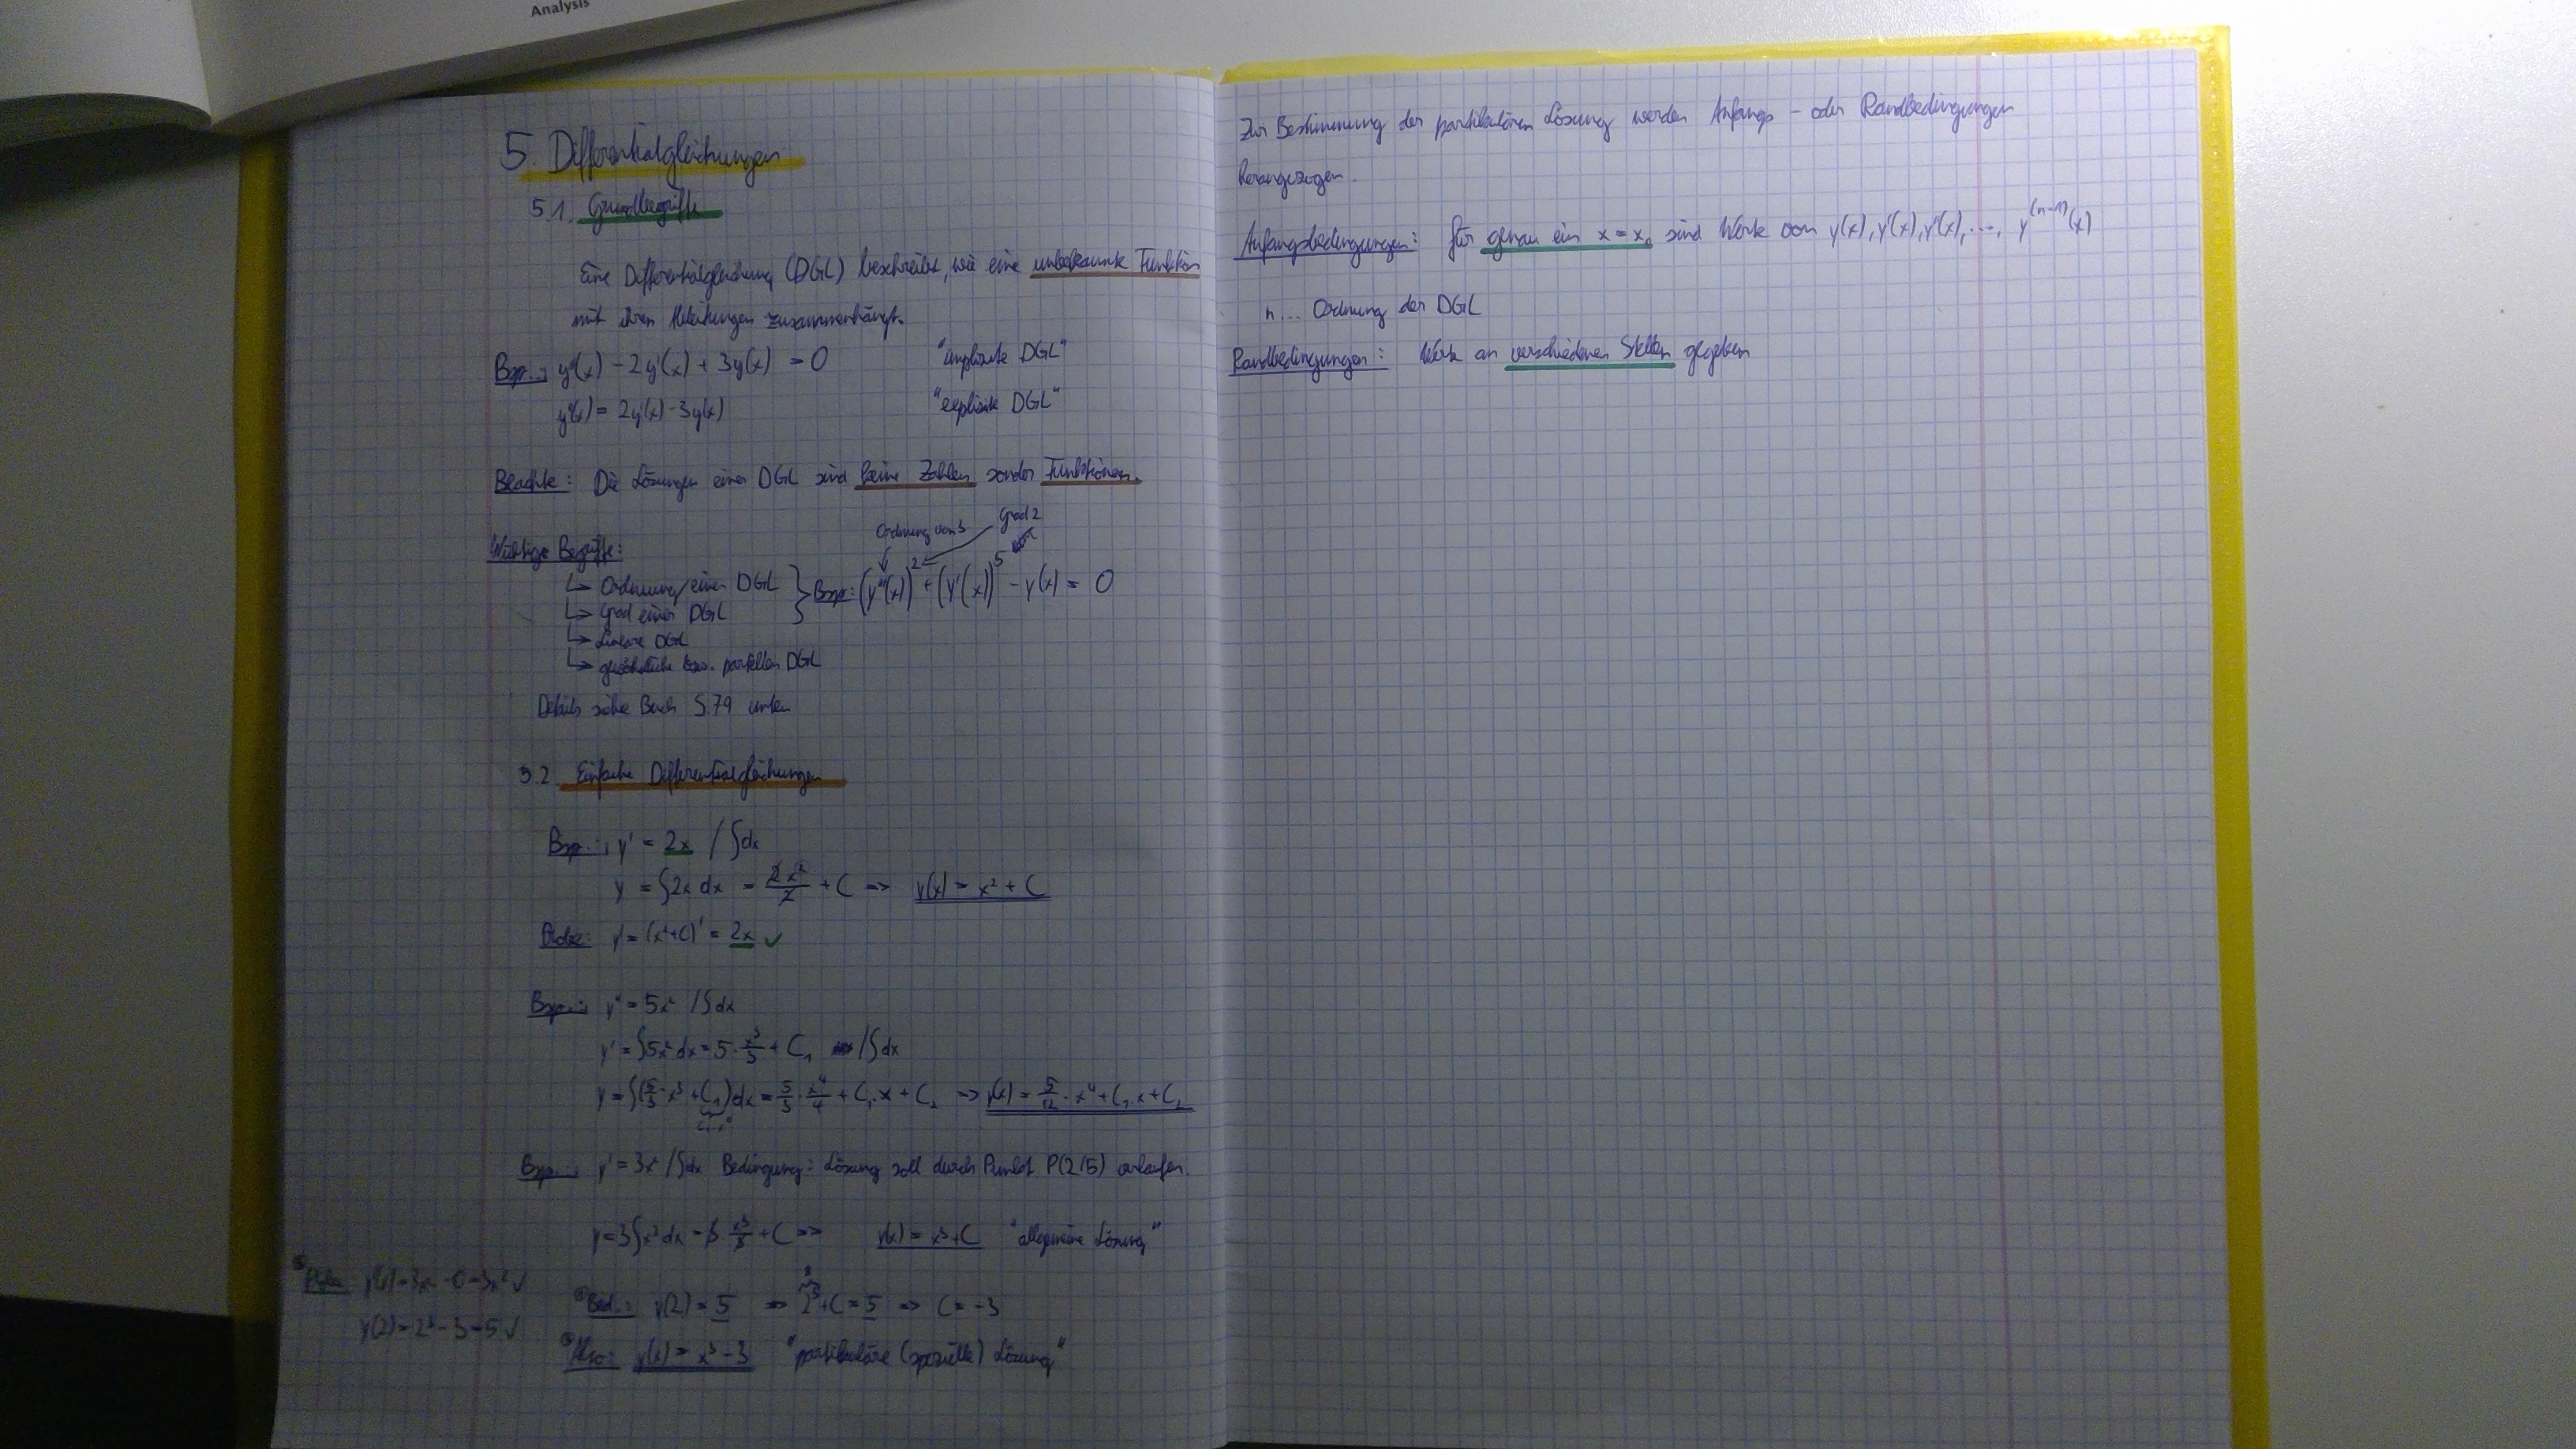 Analysis
5. Differentialgleichungen
5.1. Grundbegriffe
Eine Differentialgleichung (DGL) beschreibt, wie eine unbekannte Funktion
mit ihren Ableitungen zusammenhängt.
Bsp.: y''(x) - 2y'(x) + 3y(x) = 0 "implizite DGL"
y''(x) = 2y'(x) - 3y(x) "explizite DGL"
Beachte: Die Lösungen einer DGL sind keine Zahlen sonder Funktionen.
Ordnung von 3 Grad 2
Wichtige Begriffe:
↳ Ordnung einer DGL
↳ Grad einer DGL
} Bsp.: (y'''(x))² + (y'(x))⁵ - y(x) = 0
↳ Lineare DGL
↳ gewöhnliche bzw. partielle DGL
Details siehe Buch S.79 unten
5.2 Einfache Differentialgleichungen
Bsp.: y' = 2x /∫dx
y = ∫2x dx = 2x²/2 + C => y(x) = x² + C
Probe: y' = (x²+C)' = 2x ✓
Bsp.: y'' = 5x² /∫dx
y' = ∫5x² dx = 5 · x³/3 + C₁ /∫dx
y = ∫(5/3 · x³ + C₁)dx = 5/3 · x⁴/4 + C₁·x + C₂ => y(x) = 5/12 · x⁴ + C₁·x + C₂
Bsp.: y' = 3x² /∫dx Bedingung: Lösung soll durch Punkt P(2/5) verlaufen.
y = 3∫x² dx = 3 · x³/3 + C => y(x) = x³ + C "allgemeine Lösung"
Bed.: y(2) = 5 => 2³ + C = 5 => C = -3
8
Also: y(x) = x³ - 3 "partikuläre (spezielle) Lösung"
Probe: y'(x) = 3x² - 0 = 3x² ✓
y(2) = 2³ - 3 = 5 ✓
Zur Bestimmung der partikulären Lösung werden Anfangs- oder Randbedingungen
herangezogen.
Anfangsbedingungen: für genau ein x = x₀ sind Werte von y(x), y'(x), y''(x), ..., y⁽ⁿ⁻¹⁾(x)
n... Ordnung der DGL
Randbedingungen: Werte an verschiedenen Stellen gegeben